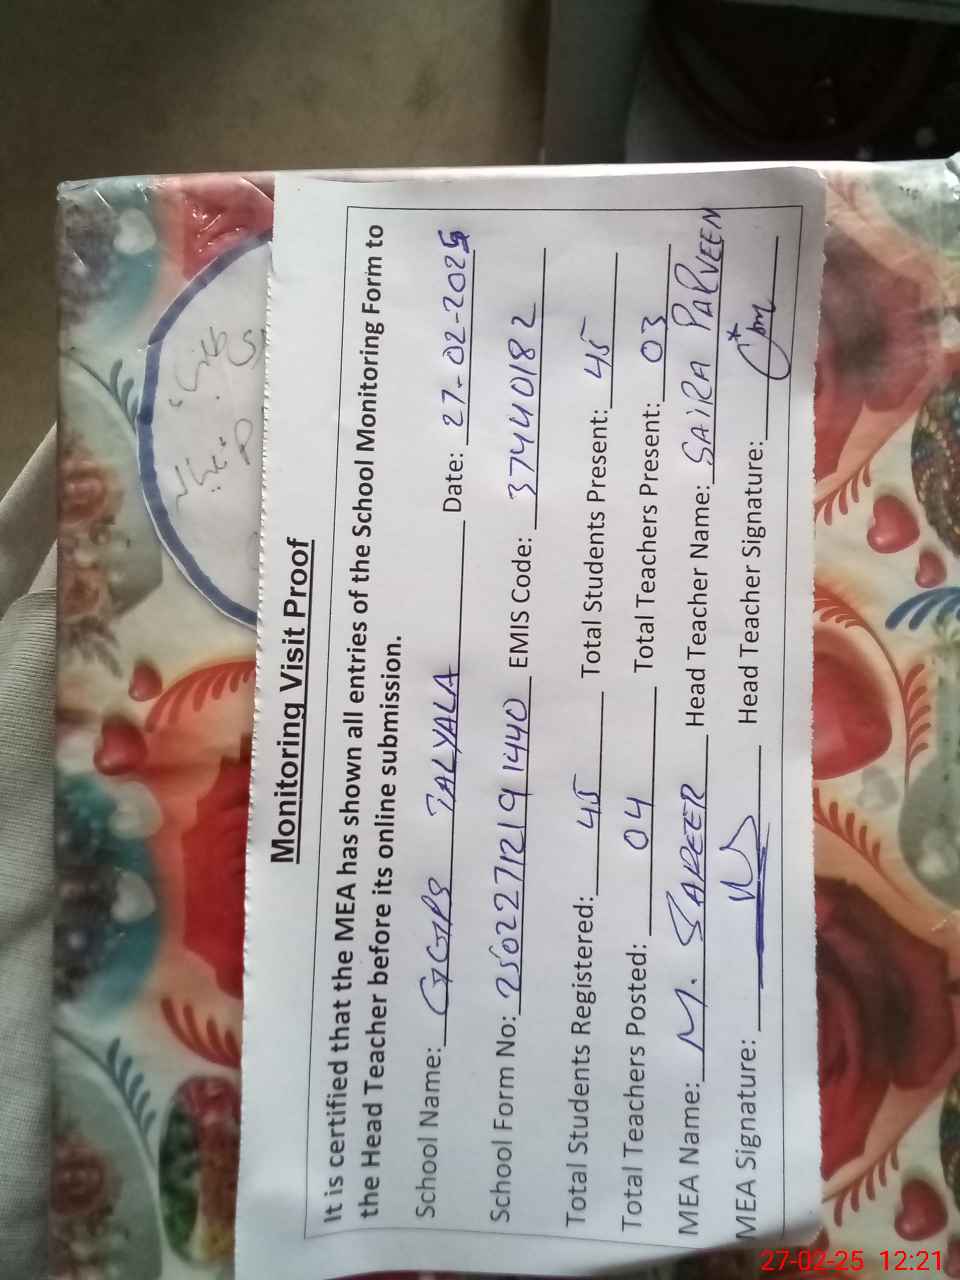 Monitoring Visit Proof
It is certified that the MEA has shown all entries of the School Monitoring Form to
the Head Teacher before its online submission.
School Name: GGPS TALYALA Date: 27-02-2025
School Form No: 25022712191440 EMIS Code: 37440182
Total Students Registered: 45 Total Students Present: 45
Total Teachers Posted: 04 Total Teachers Present: 03
MEA Name: M. SAREER Head Teacher Name: SAIRA PARVEEN
MEA Signature: Head Teacher Signature:
27-02-25 12:21